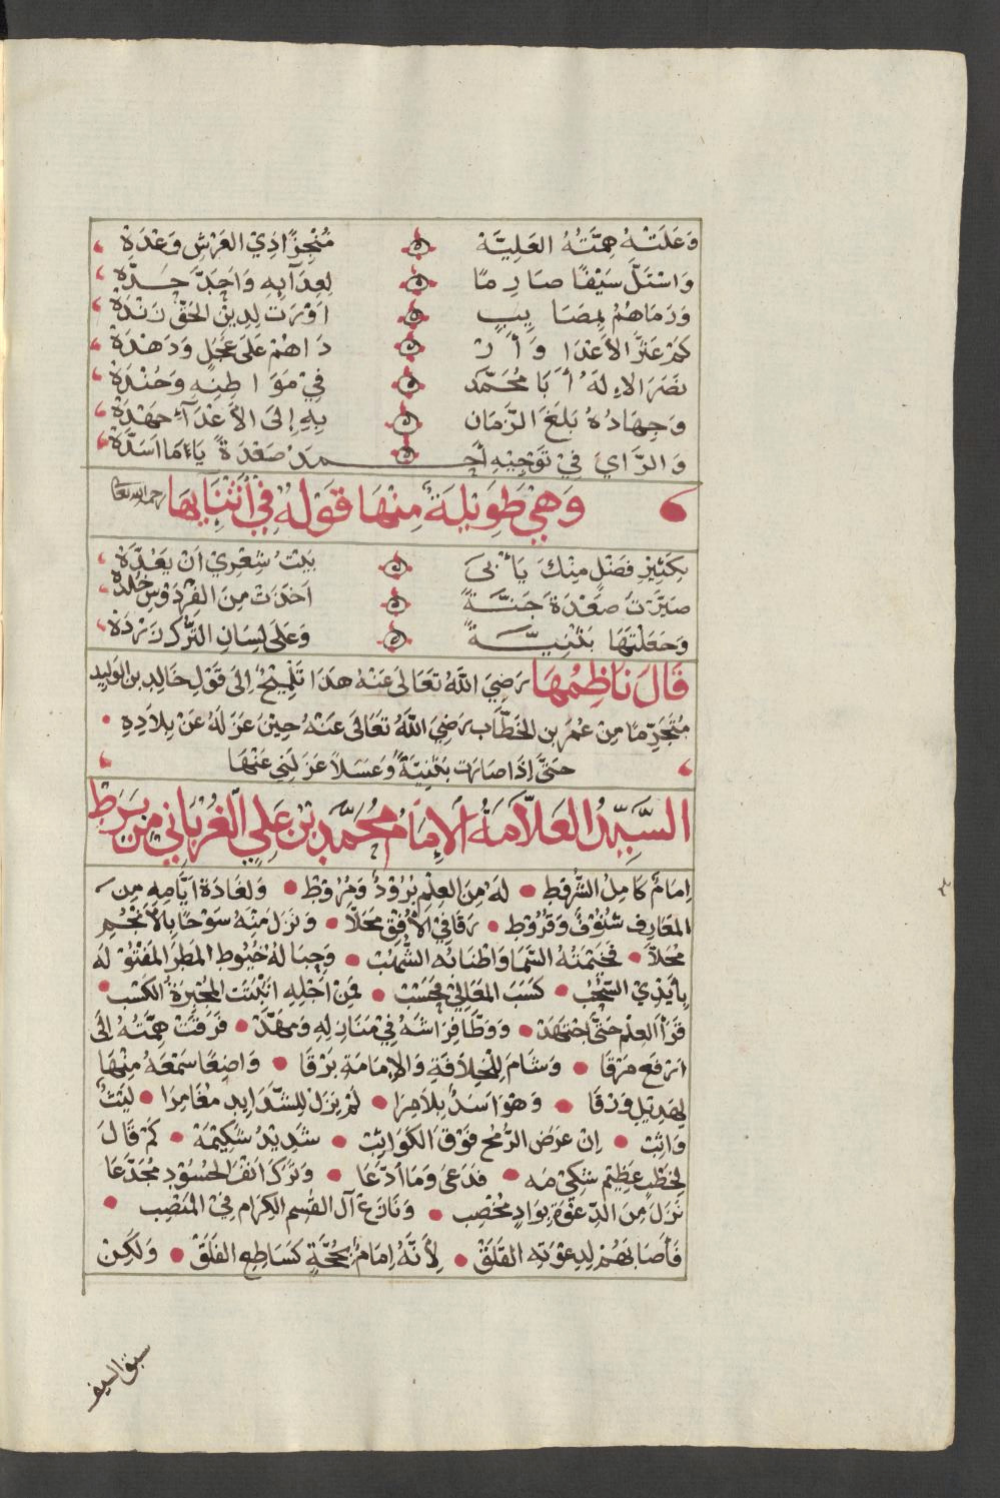 وَعَلَتْهُ هِمَّتُهُ العَلِيَّهْ ۞ مُنْجِزًا ذِي العَرْشِ وَعْدَهْ
وَاسْتَلَّ سَيْفًا صَارِمًا ۞ لِعِدَآيِهِ وَاَجَدَّ حَدَّهْ
وَرَمَاهُمْ بِمَصَايِبٍ ۞ اَوْرَتْ لِدِينِ الحَقِّ زَنْدَهْ
كَمْ عَثَّرَ الأَعْدَا وَ ۞ دَاهُمْ عَلَى عَجَلٍ وَدَهْدَهْ
نَصَرَ الاِلَهُ أَبَا مُحَمَّد ۞ فِي مَوَاطِنِهِ وَجُنْدَهْ
وَجِهَادُهُ بَلَغَ الزَّمَان ۞ بِهِ إِلَى الأَعْدَآءِ جَهْدَهْ
وَالرَّاي فِي تَوْجِيْهِ أَحْـ ۞ ـمَدْ صَعْدَةً يَا مَا اَسَدَّهْ
وَهِيَ طَوِيْلَةٌ مِنْهَا قَوْلُهُ فِي أَثْنَايِهَا رحمه الله تعالى
بِكَثِيْرِ فَضْلٍ مِنْكَ يَأْبَى ۞ بَيْتُ شِعْرِيْ اَنْ يَعُدَّهْ
صَيَّرْتَ صَعْدَةَ جَنَّـةً ۞ اَخَذَتْ مِنَ الفِرْدَوْسِ خُلْدَهْ
وَجَعَلْتَهَا بَثَنِيَّـةً ۞ وَعَلَى لِسَانِ التُّرْكِ زَرْدَهْ
قَالَ نَاظِمُهَا رَضِيَ اللهُ تَعَالَى عَنْهُ هَذَا تَلْمِيْحٌ إِلَى قَوْلِ خَالِد بن الوَلِيد
مُتَجَرِّمًا مِنْ عُمَرَ بن الخَطَّاب رَضِيَ اللهُ تَعَالَى عَنْهُ حِيْنَ عَزَلَهُ عَنْ بِلاَدِهِ
حَتَّى اِذَا صَارَت بَثَنِيَّةً وَعَسَلاً عَزَلَنِي عَنْهَا
السَّيِّدُ العَلاَّمَةُ الإِمَامُ مُحَمَّد بْن عَلِي الغُرْبَانِي مِن بَرَطِ
اِمَامٌ كَامِلُ الشُّرُوط • لَهُ مِنَ العِلْمِ بُرُوْدٌ وَمُرُوْط • وَلِغَادَةِ اَيَّامِهِ مِن
المَعَارِف شُنُوْفٌ وَقُرُوْط • رَقَا فِي الأُفُقِ مَحَلاَّ • وَنَزَلَ مِنْهُ سَوْحًا بِالأَنْجُمِ
مُحَلاَّ • فَخَيْمَتُهُ السَّمَا وَاَطْنَابُهُ الشُّهُبْ • وَحِبَالُهُ خُيُوْط المَطَرِ المَفْتُوْلِ لَهُ
بِأَيْدِي السُّحُبْ • كَسَبَ المَعَالِيْ فَحَسْبْ • فَمِنْ اَجْلِهِ اُثْبِتَتْ المُجْبِرَةُ الكَسْب •
قَرَأَ العِلْمَ حَتَّى اجْتَهَدْ • وَوَطَّا فِرَاشَهُ فِيْ مَنَازِلِهِ وَمَهَّدْ • فَرَقَتْ هِمَّتُهُ اِلَى
اَرْفَعِ مَرْقَا • وَشَامَ لِلْخِلاَفَةِ وَالإِمَامَةِ بَرْقَا • وَاضِعًا سَمْعَهُ مِنْهَا
لِهَدِيْلٍ وَرْقَا • وَهْوَ اَسَدٌ بِلاَ مِرَا • لَمْ يَزَلْ لِلشَّدَايِدِ مُغَامِرَا • لَيْثٌ
وَاثِبْ • اِنْ عَرَضَ الرُّمْحَ فَوْقَ الكَوَاثِبْ • شَدِيْدُ شَكِيْمَهْ • كَمْ قَالَ
لِخَطْبٍ عَظِيْمٍ شَكِّي مَه • فَدَعَى وَمَا ادَّعَا • وَتَرَكَ اَنْفَ الحَسُوْدِ مُجَدَّعَا
نَزَلَ مِنَ الدَّعْوَةِ بِوَادٍ مُخْصِب • وَنَازَعَ آلَ القَسِم الكِرَامِ فِيْ المَنْصِب •
فَأَصَابَهُمْ لِدِعْوَتِهِ القَلَقْ • لِأَنَّهُ اِمَامٌ بِحُجَّةٍ كَسَاطِعِ الفَلَقْ • وَلَكِنْ
سبق السيف